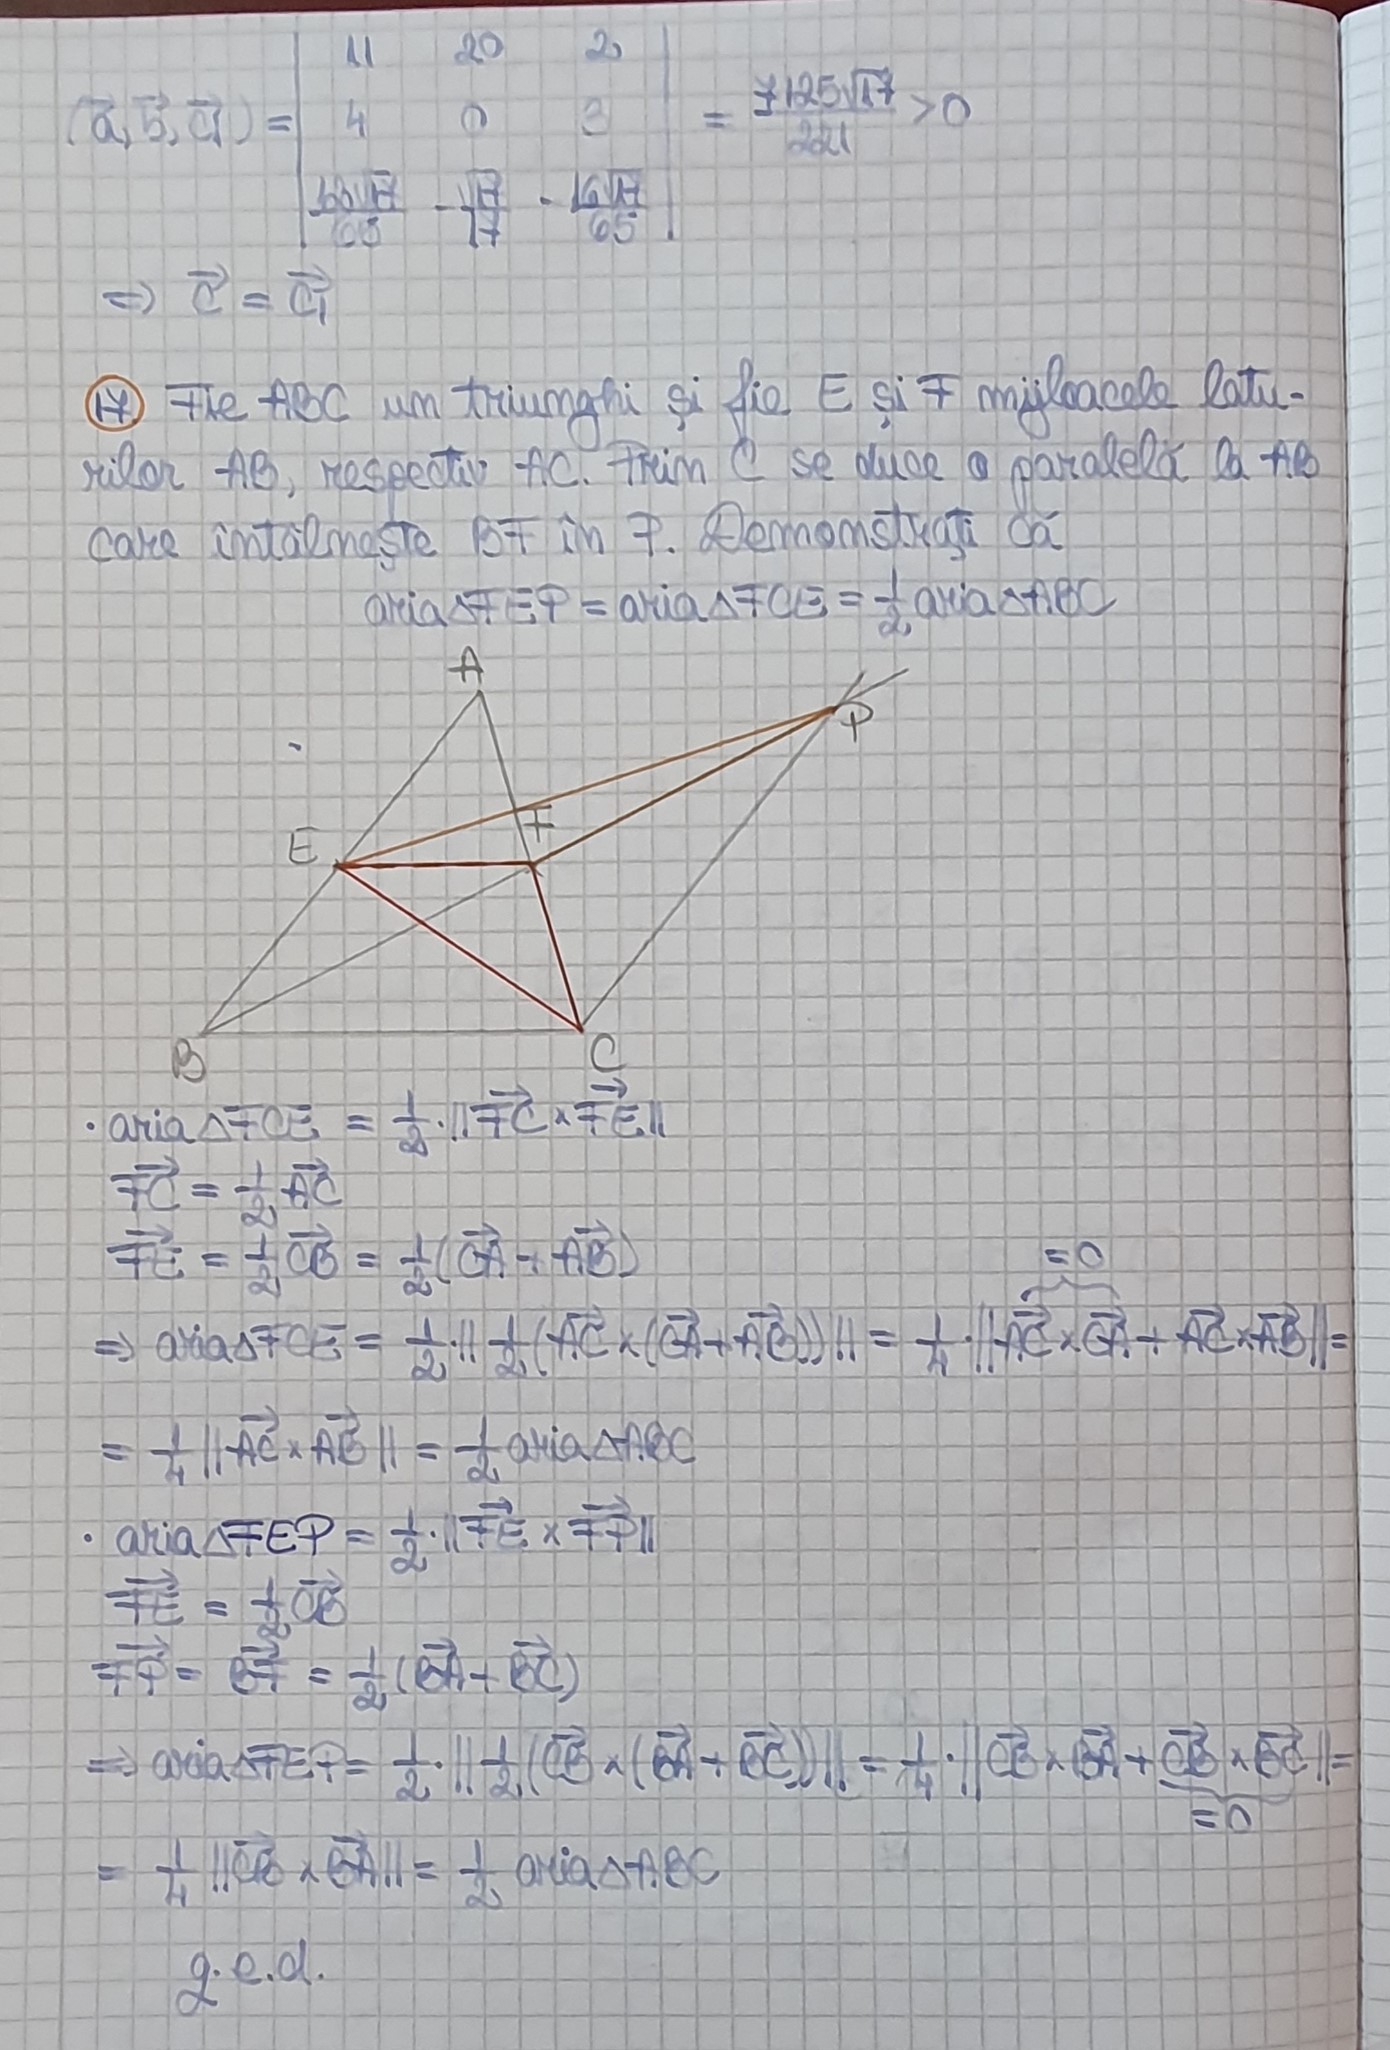 11 20 2
(a⃗, b⃗, c⃗₁) = 4 0 3 = 7125√17/221 > 0
63√17/65 -√17/17 - 16√17/65
⇒ c⃗ = c⃗₁
17 Fie ABC un triunghi și fie E și F mijloacele latu-
rilor AB, respectiv AC. Prin C se duce o paralelă la AB
care întâlnește BF în P. Demonstrați că
aria△FEP = aria△FCE = 1/2 aria△ABC
A
P
F
E
B
C
· aria△FCE = 1/2 · ||FC⃗ × FE⃗||
FC⃗ = 1/2 AC⃗
FE⃗ = 1/2 CB⃗ = 1/2 (CA⃗ + AB⃗)
= 0
⇒ aria△FCE = 1/2 · || 1/2 (AC⃗ × (CA⃗ + AB⃗)) || = 1/4 · ||AC⃗ × CA⃗ + AC⃗ × AB⃗|| =
= 1/4 ||AC⃗ × AB⃗|| = 1/2 aria△ABC
· aria△FEP = 1/2 · ||FE⃗ × FP⃗||
FE⃗ = 1/2 CB⃗
FP⃗ = BF⃗ = 1/2 (BA⃗ + BC⃗)
⇒ aria△FEP = 1/2 · || 1/2 (CB⃗ × (BA⃗ + BC⃗)) || = 1/4 · ||CB⃗ × BA⃗ + CB⃗ × BC⃗|| =
= 0
= 1/4 ||CB⃗ × BA⃗|| = 1/2 aria△ABC
q.e.d.